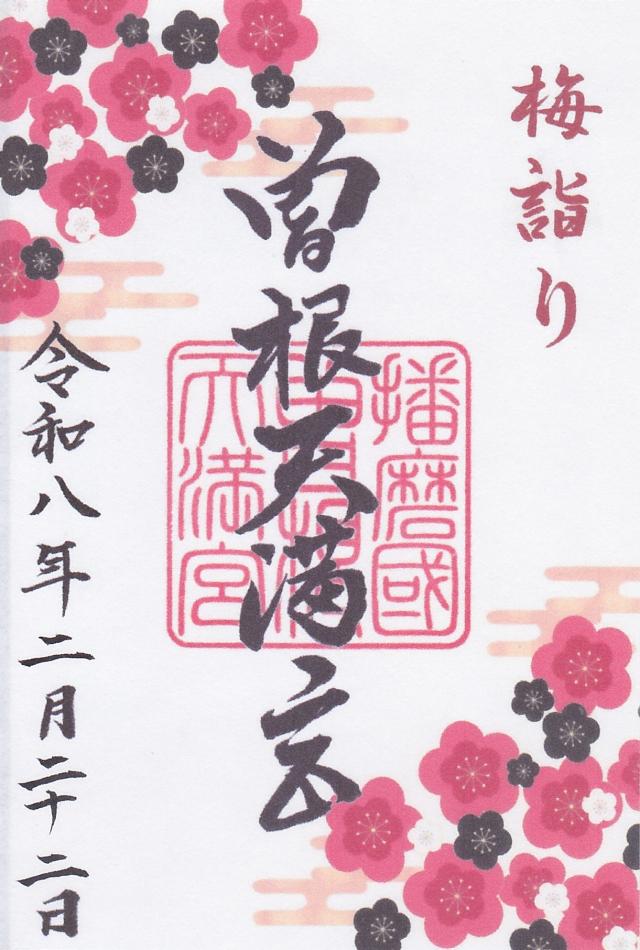 梅詣り
曽根天満宮
播磨國
天満宮
令和八年二月二十二日